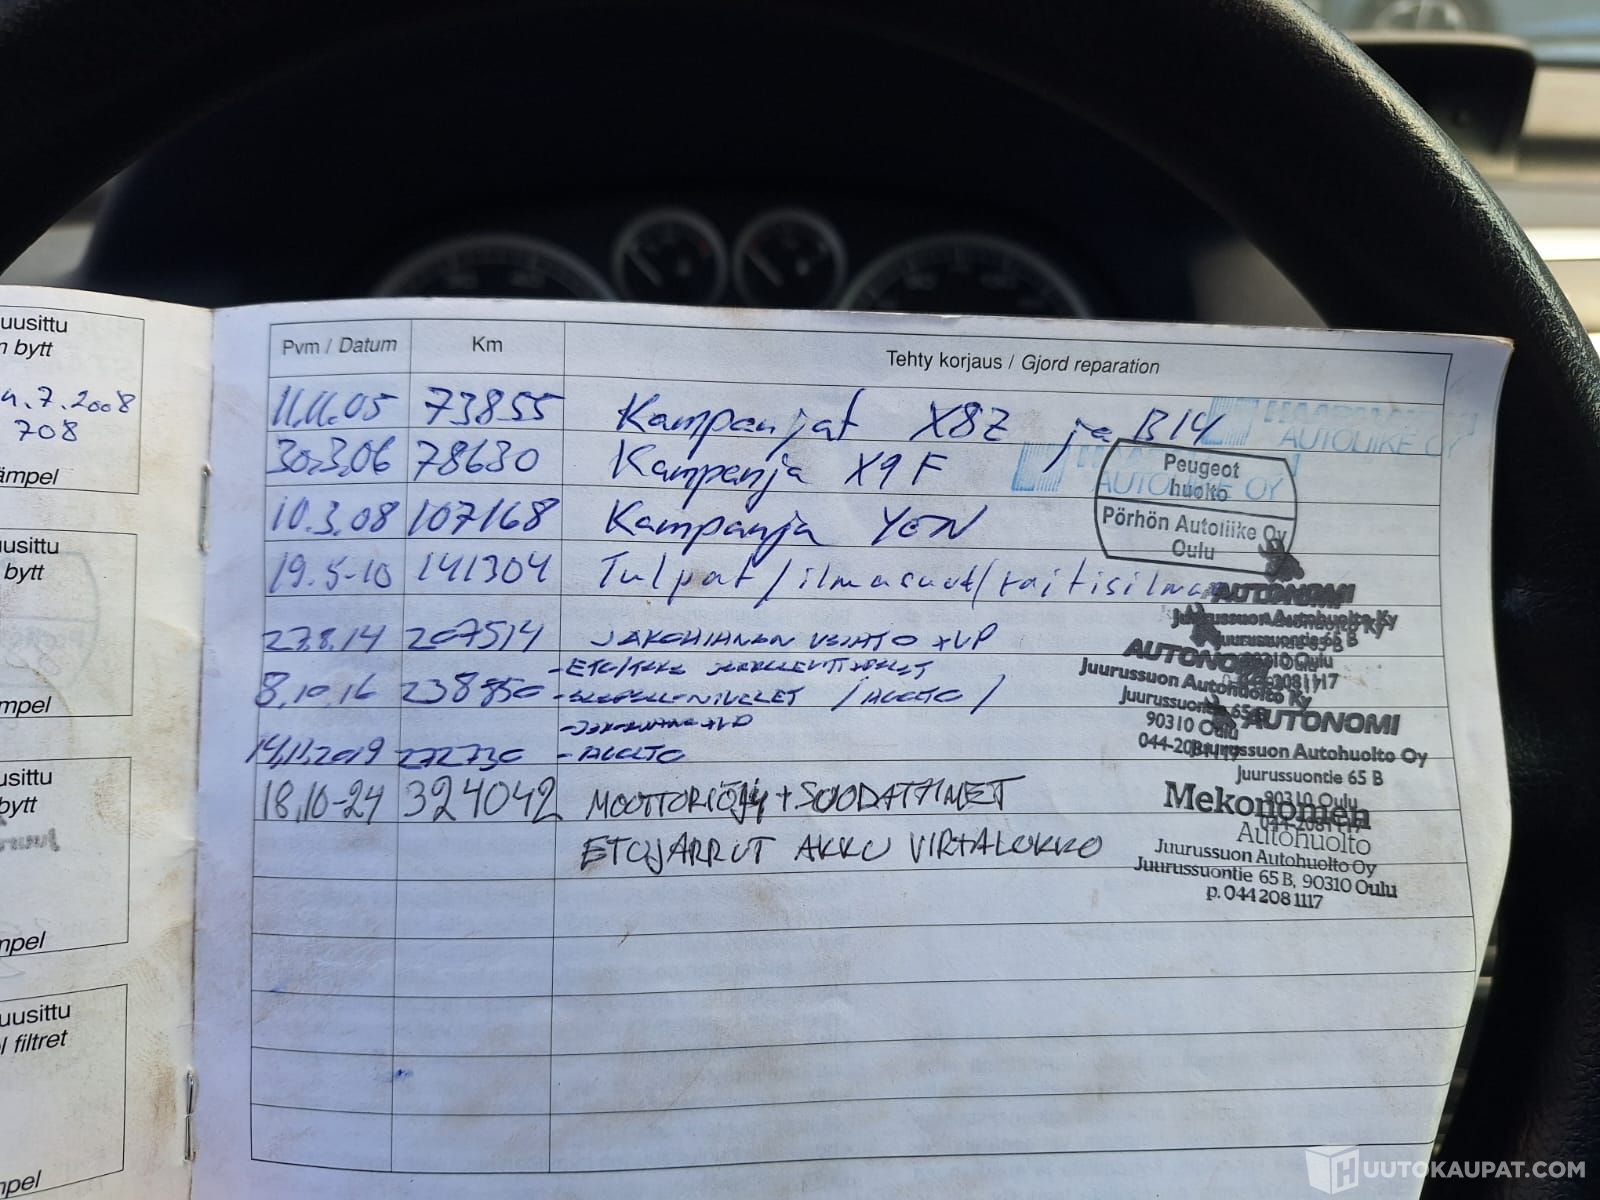 uusittu
n bytt
4.7.2008
708
ämpel
uusittu
bytt
mpel
usittu
bytt
mpel
uusittu
l filtret
mpel
Pvm / Datum Km Tehty korjaus / Gjord reparation
11.11.05 73855 Kampanjat X8Z ja B14
AUTOLIIKE OY
30.3.06 78630 Kampanja X9F
AUTOLIIKE OY
Peugeot
huolto
Pörhön Autoliike Oy
Oulu
10.3.08 107168 Kampanja YEN
19.5-10 141304 Tulpat/ilmasuod/raitisilma
AUTONOMI
Juurussuon Autohuolto Ky
Juurussuontie 65 B
90310 Oulu
27.8.14 207514 JAKOHIHNAN VAIHTO +VP
AUTONOMI
Juurussuon Autohuolto Ky
Juurussuontie 65 B
90310 Oulu
044-2081117
8.10.16 238850 - ETU/TAKA
/HUOLTO/
+VP
AUTONOMI
Juurussuon Autohuolto Oy
Juurussuontie 65 B
90310 Oulu
044-2081117
14.11.2019 272730 - HUOLTO
18.10-24 324042 MOOTTORIÖLJY + SUODATTIMET
ETUJARRUT AKKU VIRTALUKKO
Mekonomen
Autohuolto
Juurussuon Autohuolto Oy
Juurussuontie 65 B, 90310 Oulu
p. 044 208 1117
HUUTOKAUPAT.COM